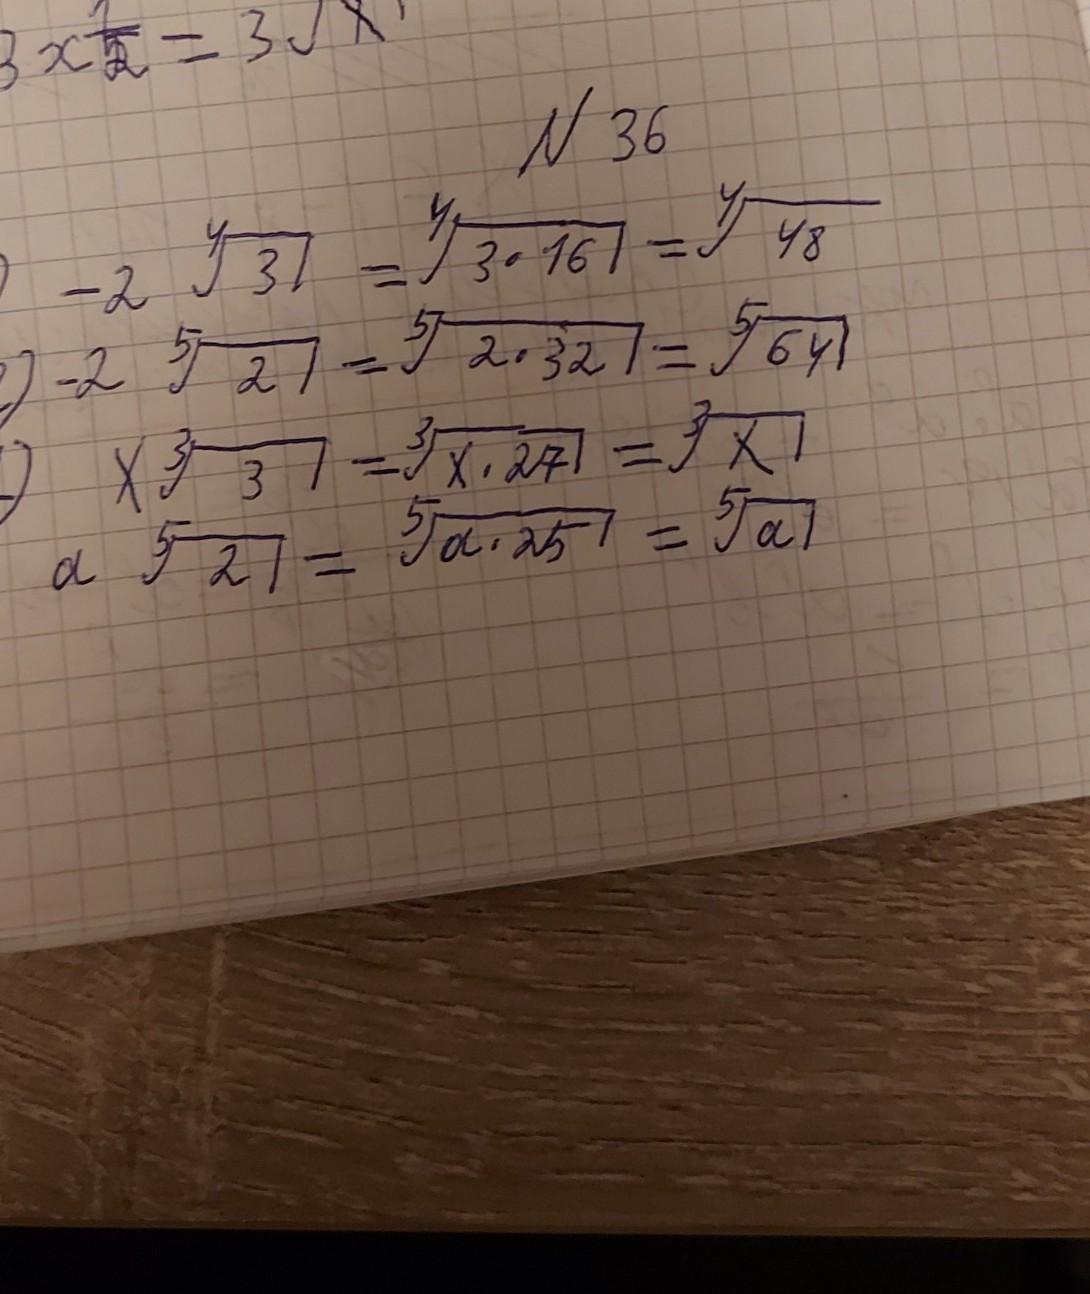 3x^{1/2} = 3√x
N 36
) -2 ∜3 = ∜(3·16) = ∜48
) -2 ⁵√2 = ⁵√(2·32) = ⁵√64
) x ³√3 = ³√(x·27) = ³√x
a ⁵√2 = ⁵√(a·25) = ⁵√a